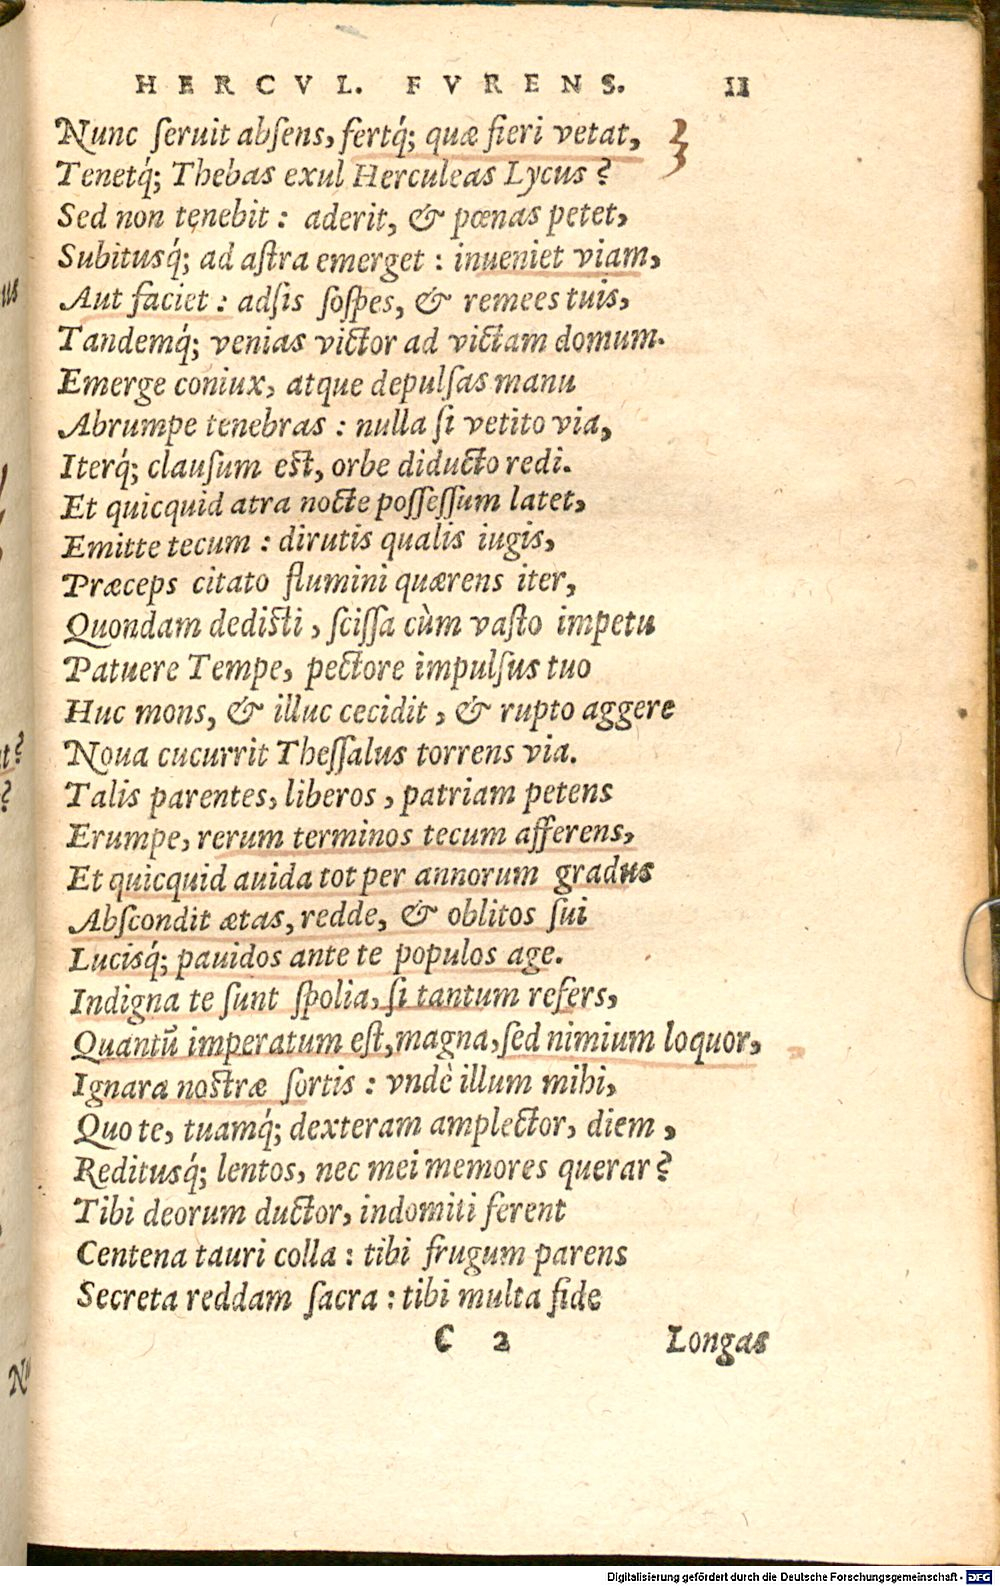 HERCVL. FVRENS. 11
Nunc ſeruit abſens, fertq́; quæ fieri vetat,
Tenetq́; Thebas exul Herculeas Lycus?
Sed non tenebit: aderit, & pœnas petet,
Subitusq́; ad aſtra emerget: inueniet viam,
Aut faciet: adſis ſoſpes, & remees tuis,
Tandemq́; venias victor ad victam domum.
Emerge coniux, atque depulſas manu
Abrumpe tenebras: nulla ſi vetito via,
Iterq́; clauſum eſt, orbe diducto redi.
Et quicquid atra nocte poſſeſſum latet,
Emitte tecum: dirutis qualis iugis,
Præceps citato flumini quærens iter,
Quondam dediſti, ſciſſa cùm vaſto impetu
Patuere Tempe, pectore impulſus tuo
Huc mons, & illuc cecidit, & rupto aggere
Noua cucurrit Theſſalus torrens via.
Talis parentes, liberos, patriam petens
Erumpe, rerum terminos tecum afferens,
Et quicquid auida tot per annorum gradus
Abſcondit ætas, redde, & oblitos ſui
Lucisq́; pauidos ante te populos age.
Indigna te ſunt ſpolia, ſi tantum refers,
Quantũ imperatum eſt, magna, ſed nimium loquor,
Ignara noſtræ ſortis: vndè illum mihi,
Quo te, tuamq́; dexteram amplector, diem,
Reditusq́; lentos, nec mei memores querar?
Tibi deorum ductor, indomiti ferent
Centena tauri colla: tibi frugum parens
Secreta reddam ſacra: tibi multa fide
C 2 Longas
Digitalisierung gefördert durch die Deutsche Forschungsgemeinschaft - DFG